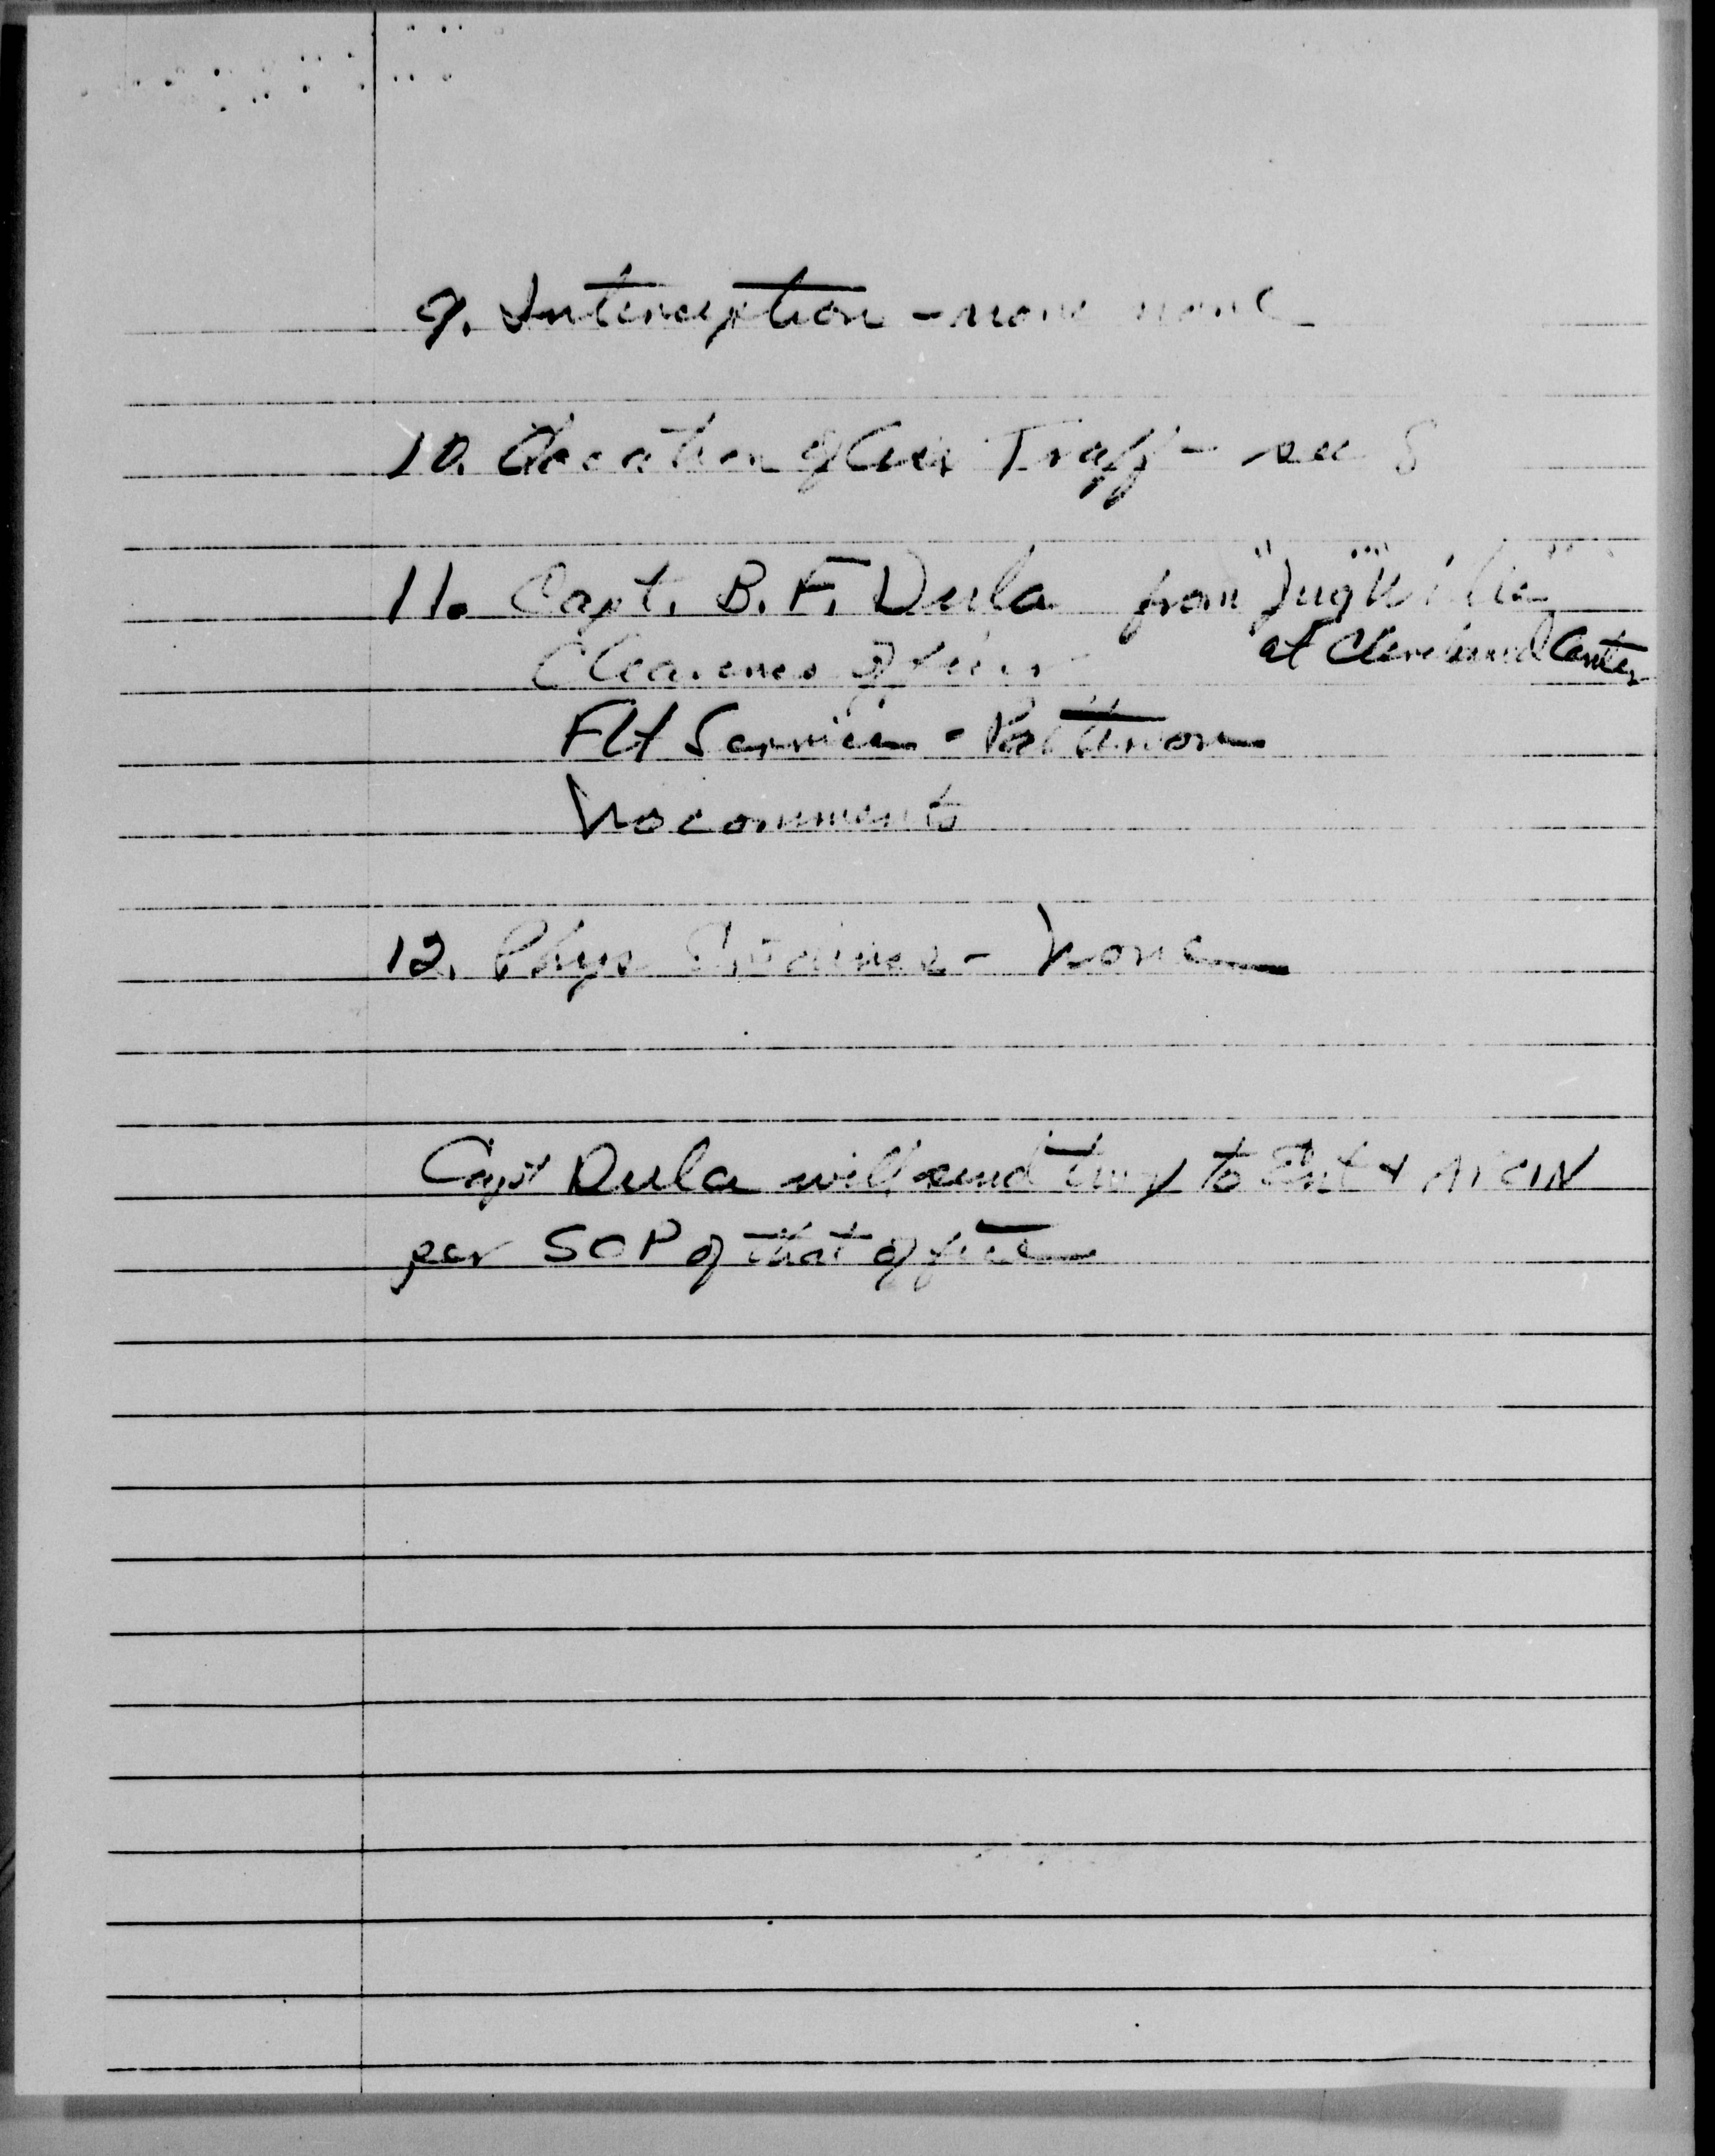 9. Interception - none none
10. Location of Air Traff - see 8
11. Capt. B. F. Dula from "Jug
at Cleveland Center
Clearance Officer
Flt Service - Patterson
No comments
12. Phys Evidence - None
Capt Dula will send twx to Ent & ATCIN
per SOP of that office